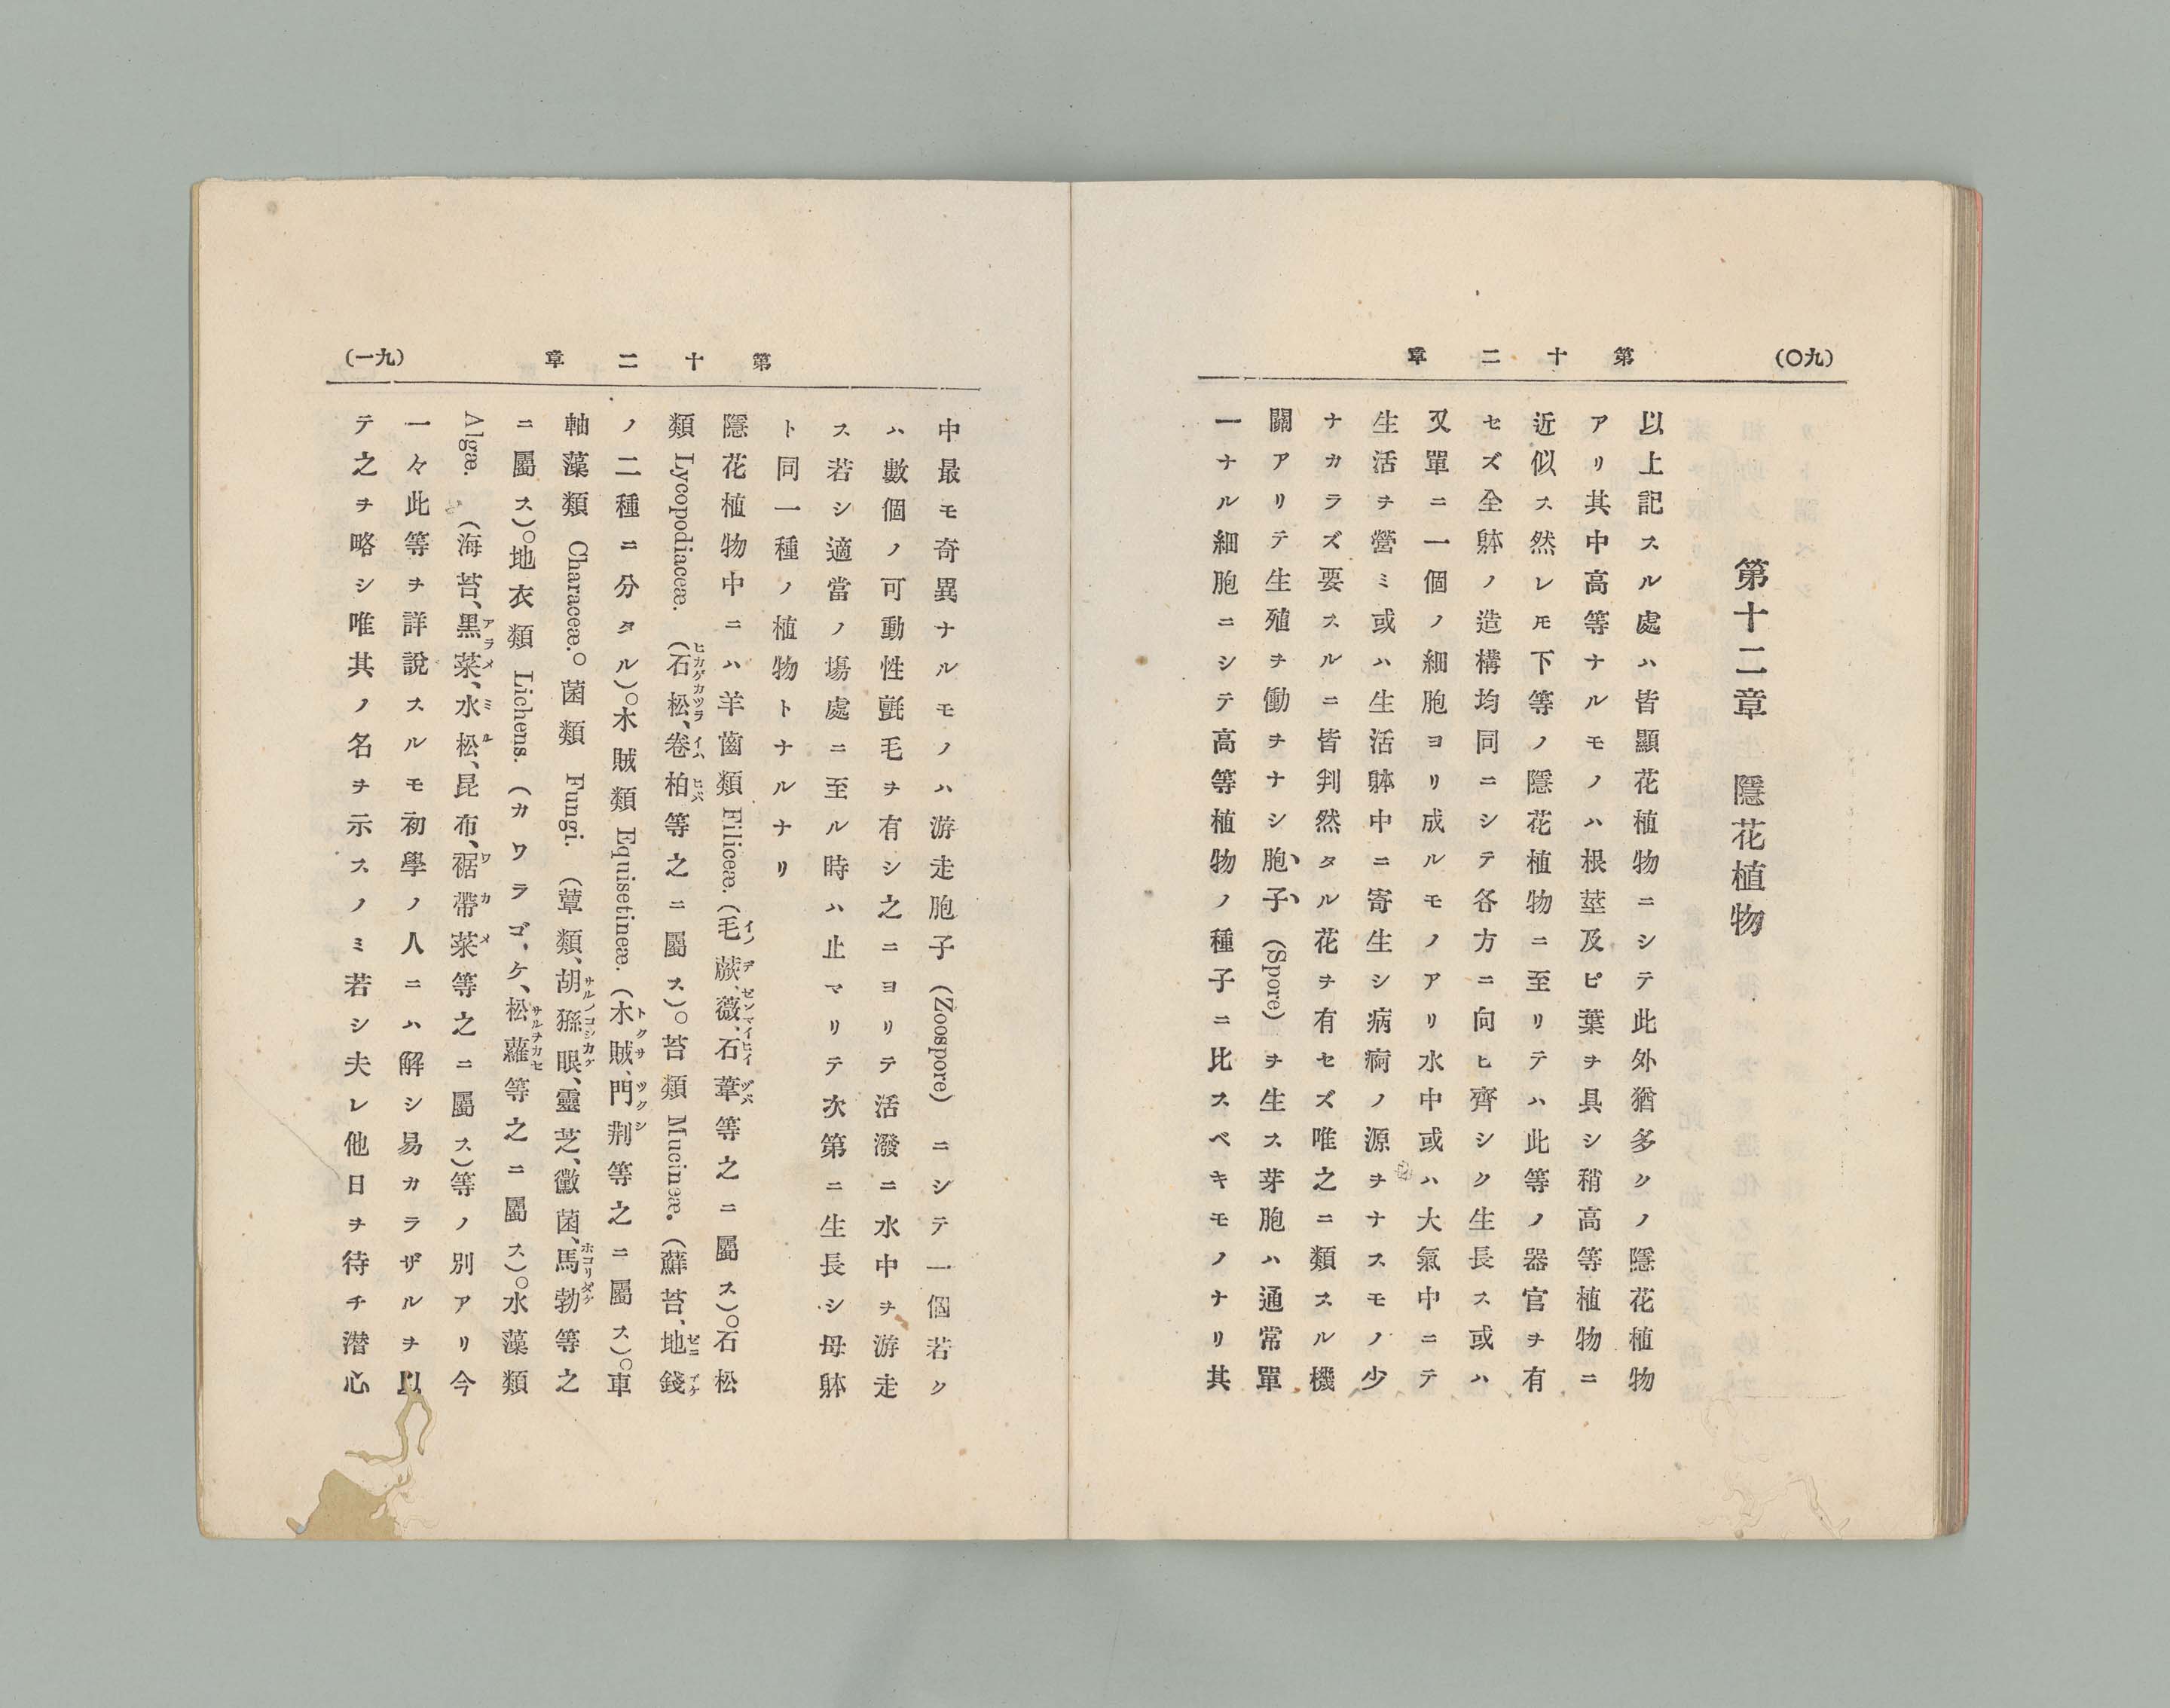 (九〇)
第十二章
第十二章 隱花植物
以上記スル處ハ皆顯花植物ニシテ此外猶多クノ隱花植物
アリ其中高等ナルモノハ根莖及ピ葉ヲ具シ稍高等植物ニ
近似ス然レ𪜈下等ノ隱花植物ニ至リテハ此等ノ器官ヲ有
セズ全躰ノ造構均同ニシテ各方ニ向ヒ齊シク生長ス或ハ
又單ニ一個ノ細胞ヨリ成ルモノアリ水中或ハ大氣中ニテ
生活ヲ營ミ或ハ生活躰中ニ寄生シ病痾ノ源ヲナスモノ少
ナカラズ要スルニ皆判然タル花ヲ有セズ唯之ニ類スル機
關アリテ生殖ヲ働ヲナシ胞子(Spore)ヲ生ス芽胞ハ通常單
一ナル細胞ニシテ高等植物ノ種子ニ比スベキモノナリ其
(九一)
第十二章
中最モ奇異ナルモノハ游走胞子(Zoospore)ニシテ一個若ク
ハ數個ノ可動性氈毛ヲ有シ之ニヨリテ活潑ニ水中ヲ游走
ス若シ適當ノ塲處ニ至ル時ハ止マリテ次第ニ生長シ母躰
ト同一種ノ植物トナルナリ
隱花植物中ニハ羊齒類 Filiceæ.(毛蕨、薇、石葦等之ニ屬ス)○石松
類 Lycopodiaceæ. (石松、卷柏等之ニ屬ス)○苔類 Mucineæ.(蘚苔、地錢
ノ二種ニ分タル)○木賊類 Equisetineæ.(木賊、門荆等之ニ屬ス)○車
軸藻類 Characeæ.○菌類 Fungi. (蕈類、胡猻眼、靈芝、黴菌、馬勃等之
ニ屬ス)○地衣類 Lichens.(カワラゴヽケ、松蘿等之ニ屬ス)○水藻類
Algæ. (海苔、黑菜、水松、昆布、裾帶菜等之ニ屬ス)等ノ別アリ今
一々此等ヲ詳說スルモ初學ノ人ニハ解シ易カラザルヲ以
テ之ヲ略シ唯其ノ名ヲ示スノミ若シ夫レ他日ヲ待チ潜心